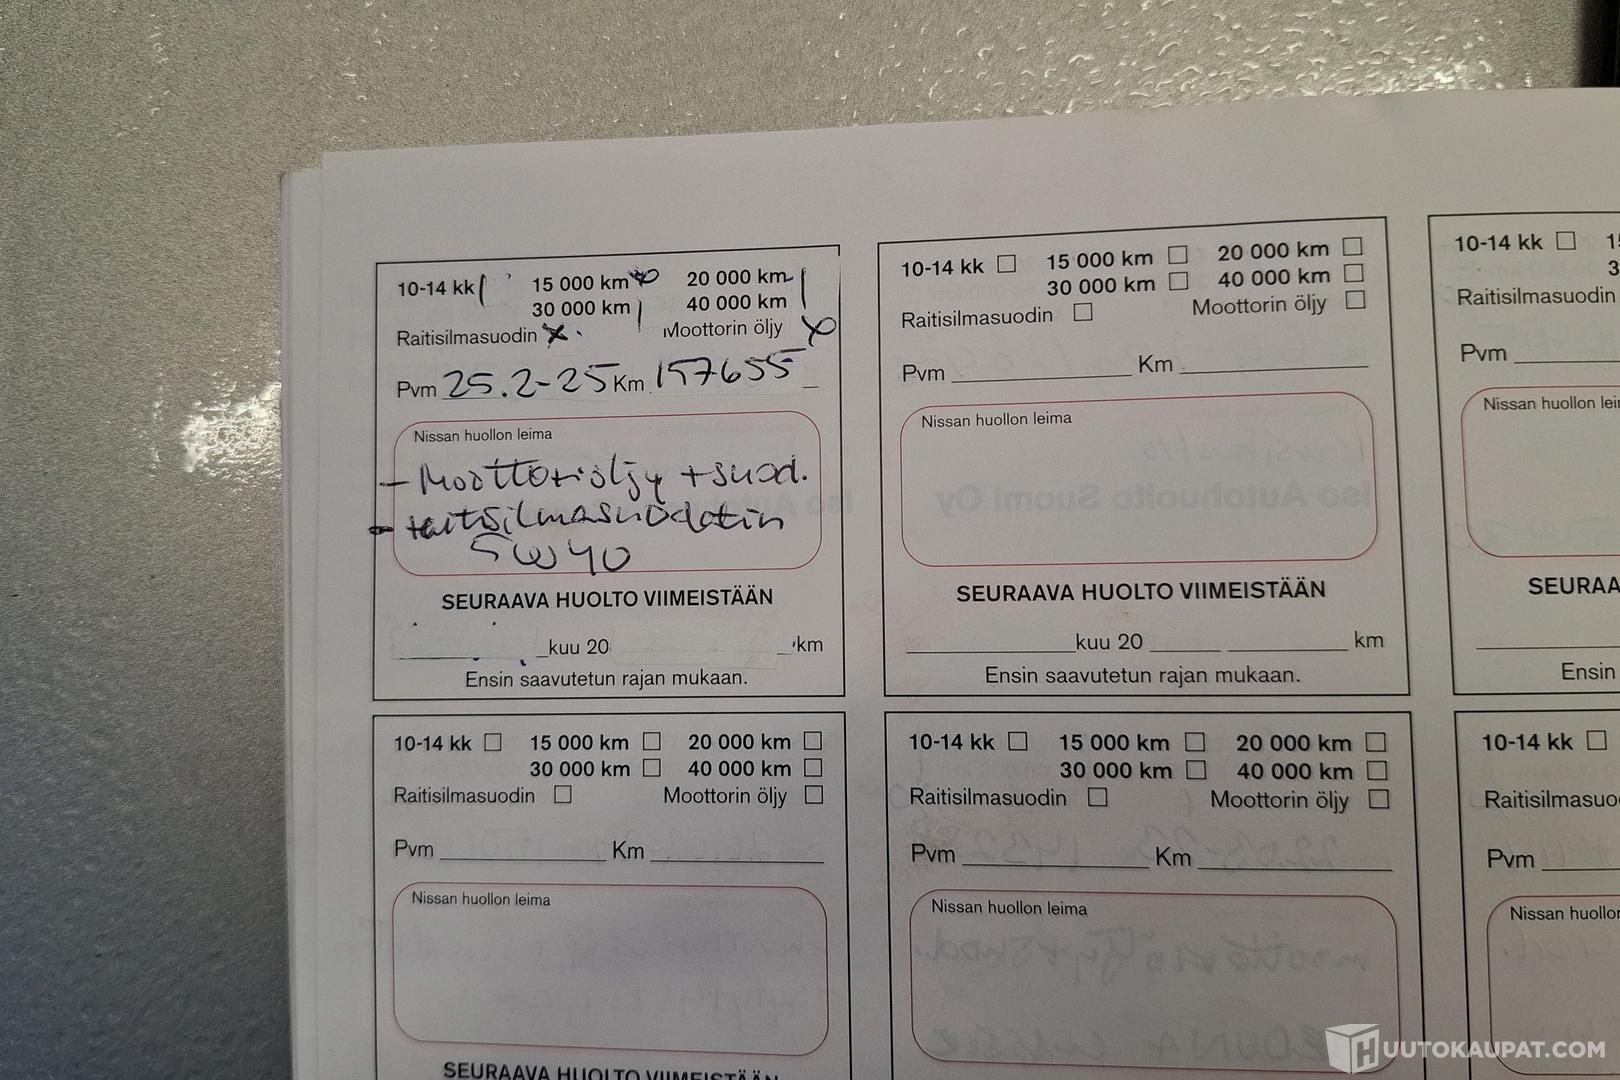 10-14 kk 15 000 km 20 000 km
30 000 km 40 000 km
Raitisilmasuodin x Moottorin öljy x
Pvm 25.2-25 Km 157655
Nissan huollon leima
- Moottoriöljy + suod.
- raitisilmasuodatin
5W40
SEURAAVA HUOLTO VIIMEISTÄÄN
kuu 20 km
Ensin saavutetun rajan mukaan.
10-14 kk 15 000 km 20 000 km
30 000 km 40 000 km
Raitisilmasuodin Moottorin öljy
Pvm Km
Nissan huollon leima
SEURAAVA HUOLTO VIIMEISTÄÄN
kuu 20 km
Ensin saavutetun rajan mukaan.
10-14 kk
Raitisilmasuodin
Pvm
Nissan huollon lei
SEURAA
Ensin
10-14 kk 15 000 km 20 000 km
30 000 km 40 000 km
Raitisilmasuodin Moottorin öljy
Pvm Km
Nissan huollon leima
SEURAAVA HUOLTO VIIMEISTÄÄN
10-14 kk 15 000 km 20 000 km
30 000 km 40 000 km
Raitisilmasuodin Moottorin öljy
Pvm Km
Nissan huollon leima
10-14 kk
Raitisilmasuo
Pvm
Nissan huollo
HUUTOKAUPAT.COM